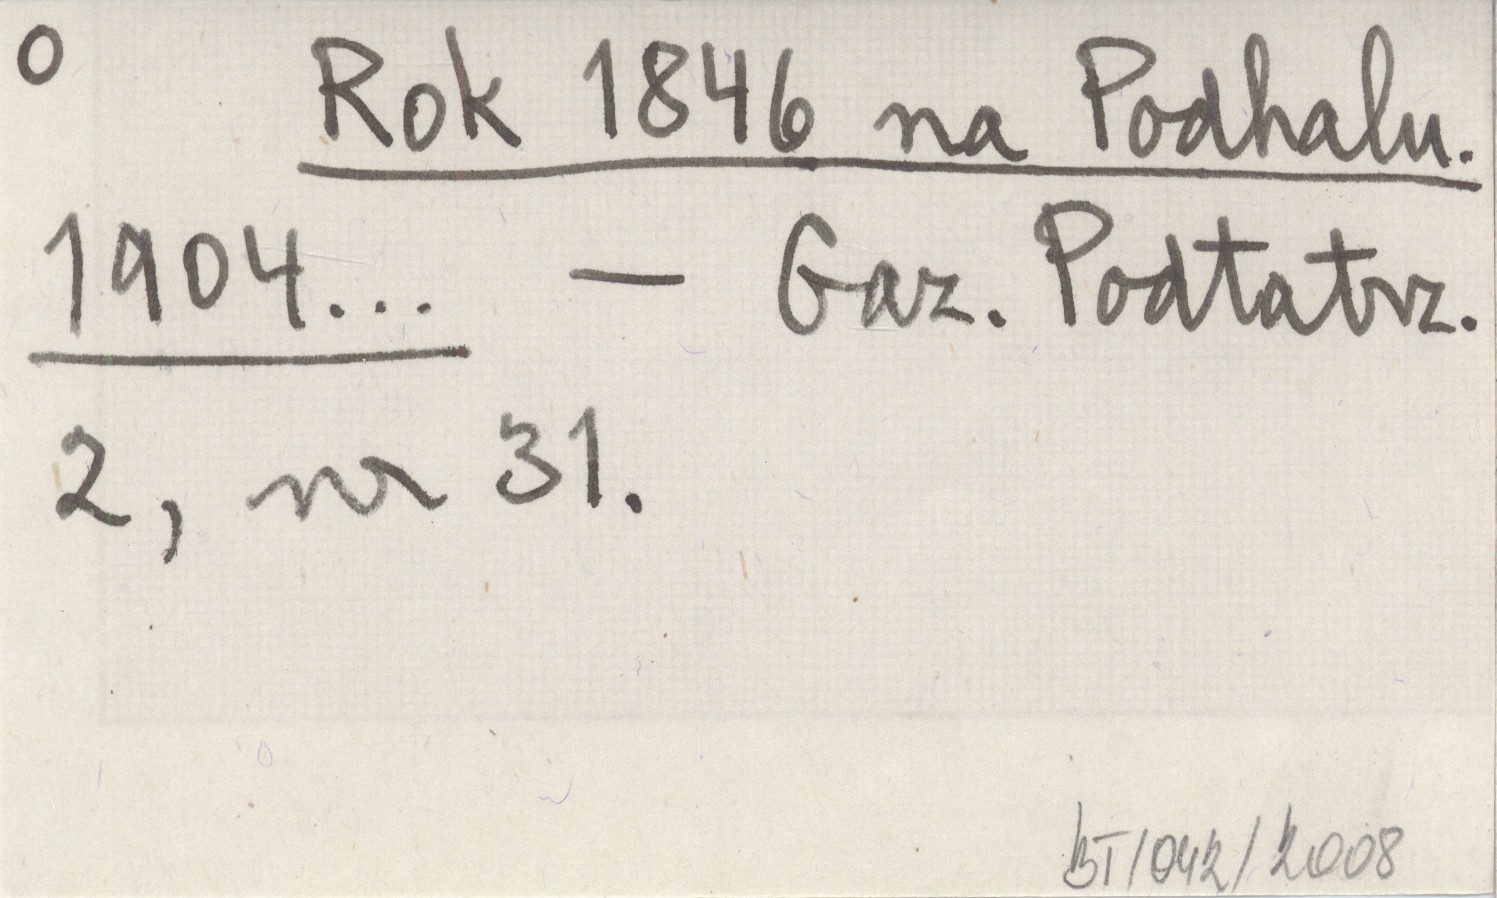 0 Rok 1846 na Podhalu.
1904... — Gaz. Podtatrz.
2, nr 31.
BT/042/2008